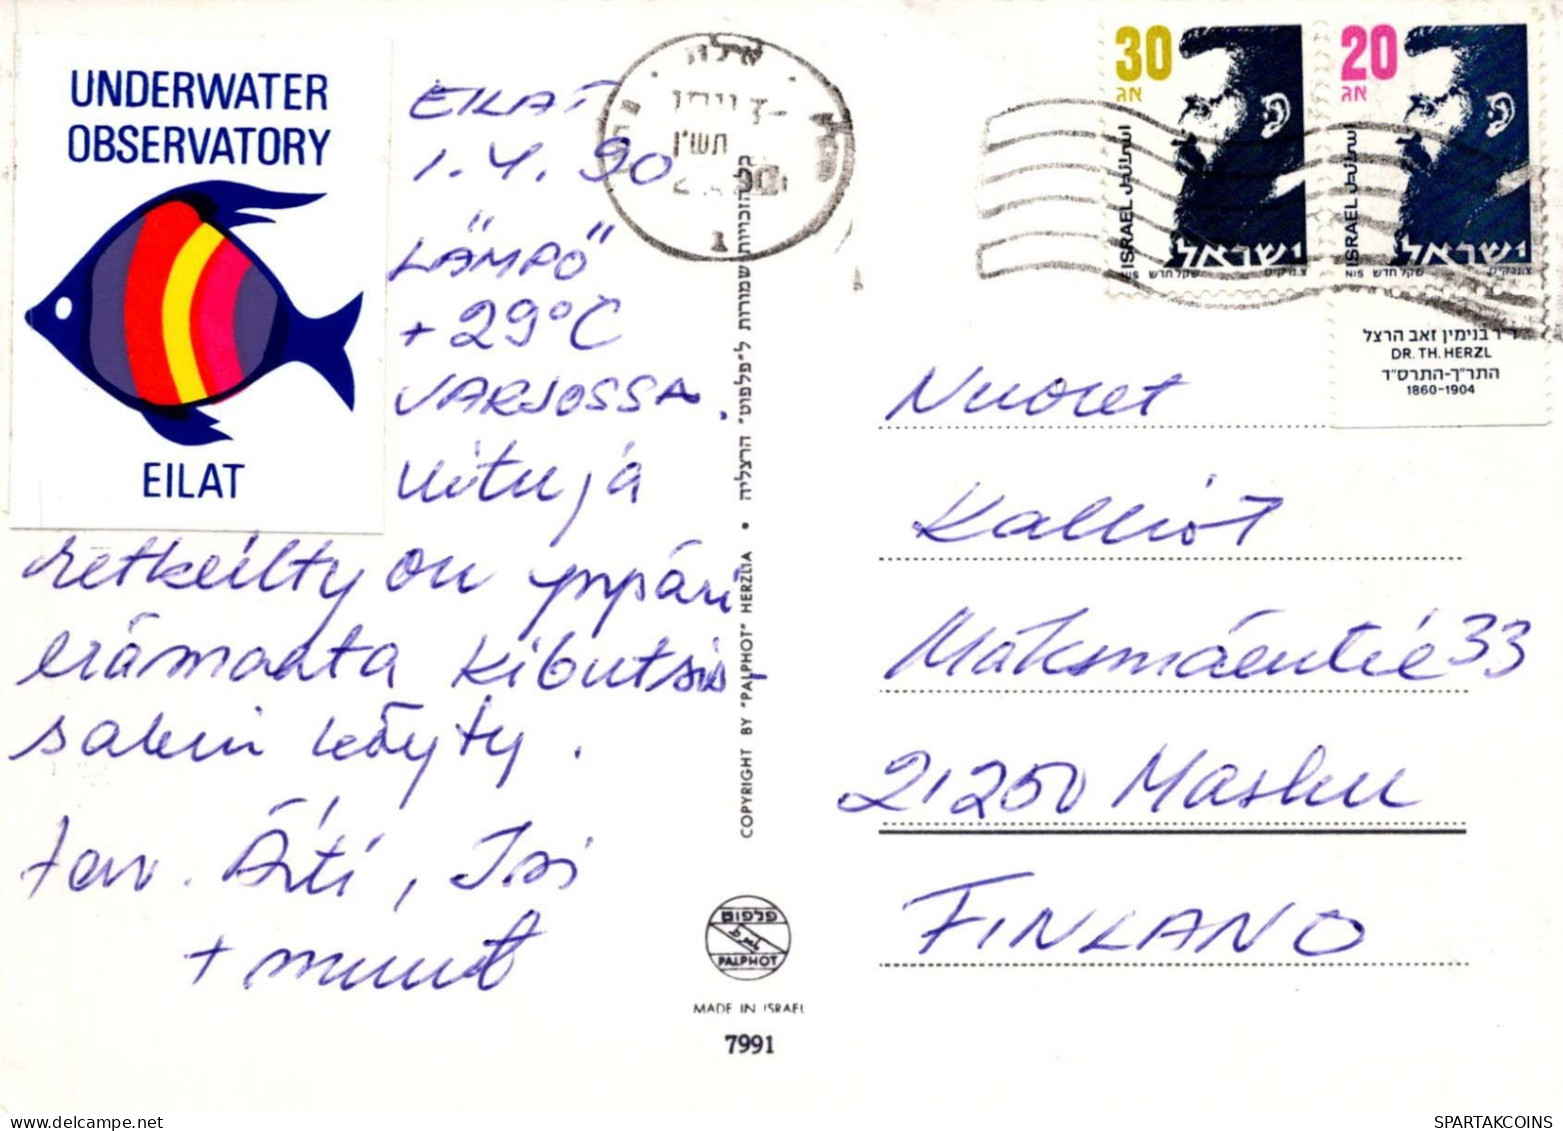 UNDERWATER
OBSERVATORY
EILAT
EILAT
1.4.90
LÄMPÖ
+29°C
VARJOSSA.
Uitu ja
retkeilty on ympäri
erämaata Kibutsis-
sakin käyty.
terv. Äiti, Isi
+ muut
אילת
תש"ן
כל הזכויות שמורות ל"פלפוט" הרצליה
COPYRIGHT BY "PALPHOT" HERZLIA
פלפוט
PALPHOT
MADE IN ISRAEL
7991
30
אג
ISRAEL اسرائيل
ישראל
NIS שקל חדש
20
אג
ISRAEL اسرائيل
ישראל
NIS שקל חדש
ד"ר בנימין זאב הרצל
DR. TH. HERZL
התר"ך-התרס"ד
1860-1904
Nuoret
Kalliot
Maksmäentie 33
21250 Masku
FINLAND
SPARTAKCOINS